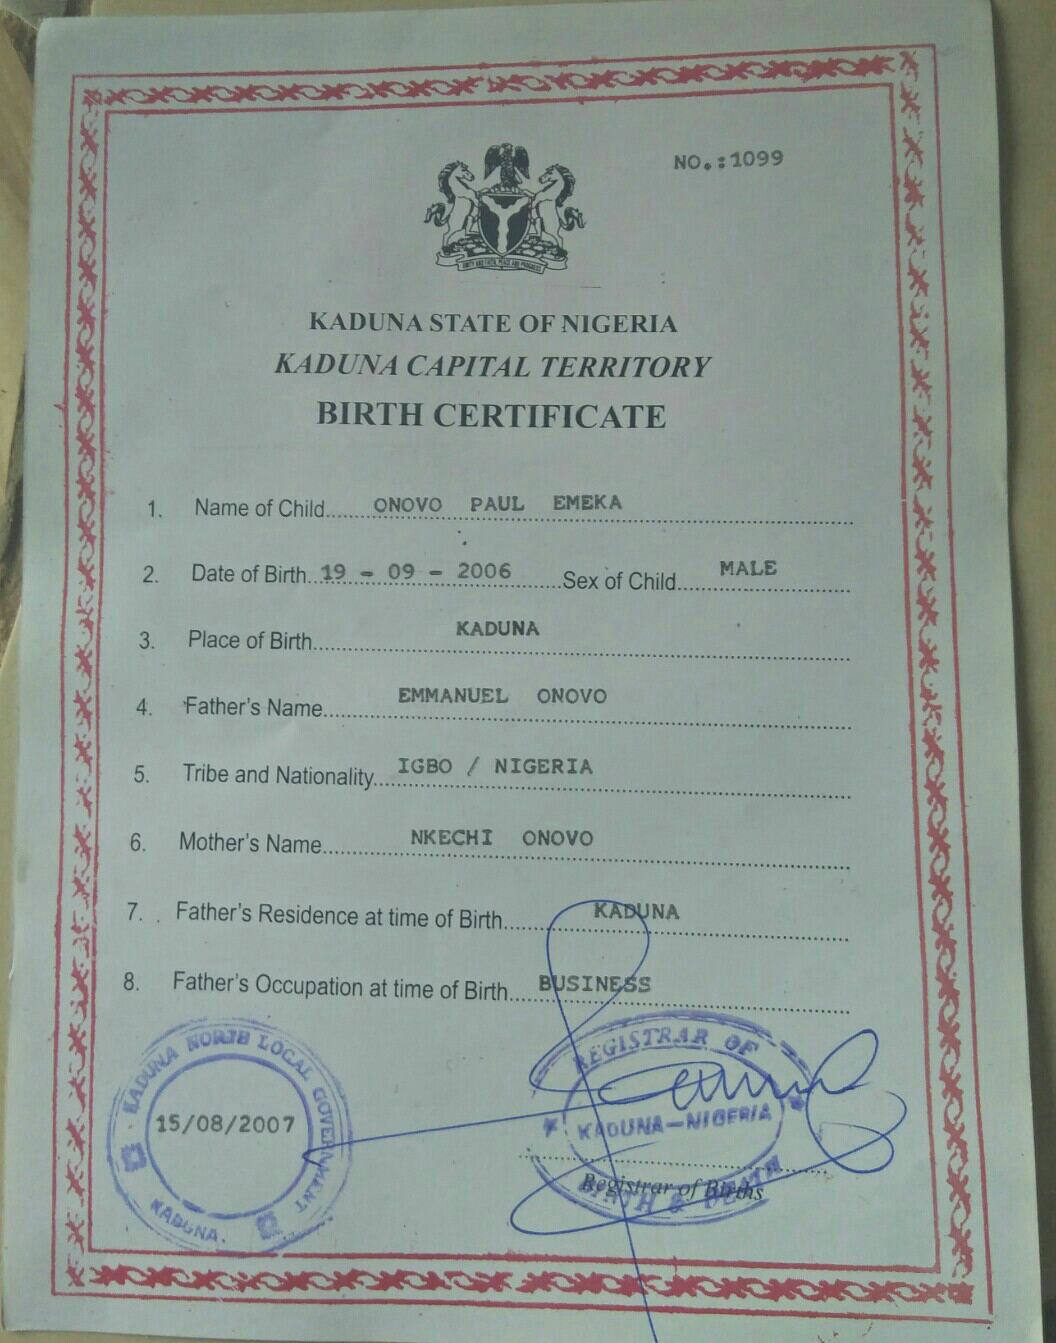 NO.:1099
UNITY AND FAITH, PEACE AND PROGRESS
KADUNA STATE OF NIGERIA
KADUNA CAPITAL TERRITORY
BIRTH CERTIFICATE
1. Name of Child......ONOVO PAUL EMEKA
2. Date of Birth..19 - 09 - 2006 Sex of Child....MALE
3. Place of Birth....KADUNA
4. Father's Name....EMMANUEL ONOVO
5. Tribe and Nationality....IGBO / NIGERIA
6. Mother's Name....NKECHI ONOVO
7. Father's Residence at time of Birth....KADUNA
8. Father's Occupation at time of Birth....BUSINESS
KADUNA NORTH LOCAL GOVERNMENT
15/08/2007
KADUNA.
REGISTRAR OF
KADUNA-NIGERIA
BIRTH & DEATH
Registrar of Births